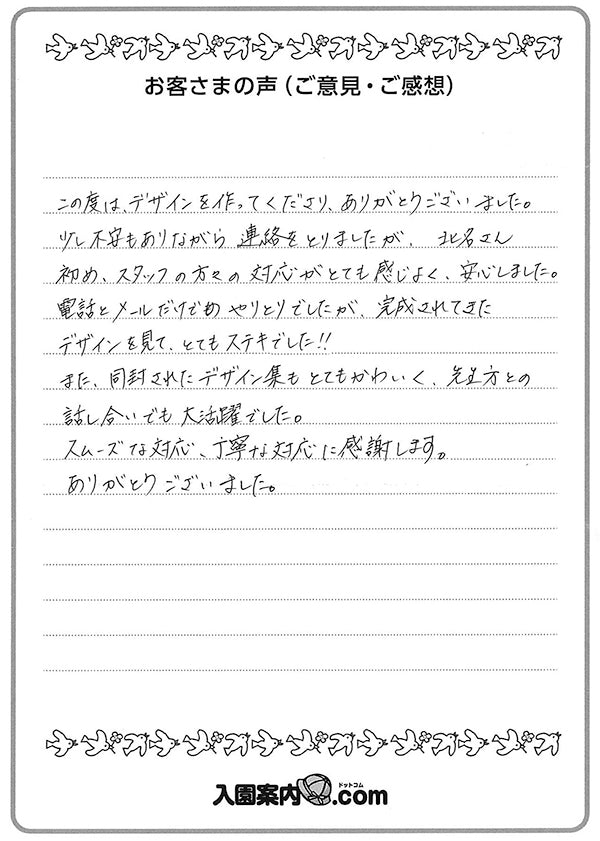 お客さまの声（ご意見・ご感想）
この度は、デザインを作ってくださり、ありがとうございました。
少し不安もありながら 連絡をとりましたが、北名さん
初め、スタッフの方々の対応がとても感じよく、安心しました。
電話とメールだけでの やりとりでしたが、完成されてきた
デザインを見て、とてもステキでした!!
また、同封されたデザイン集もとてもかわいく、先生方との
話し合いでも大活躍でした。
スムーズな対応、丁寧な対応に感謝します。
ありがとうございました。
入園案内ドットコム.com